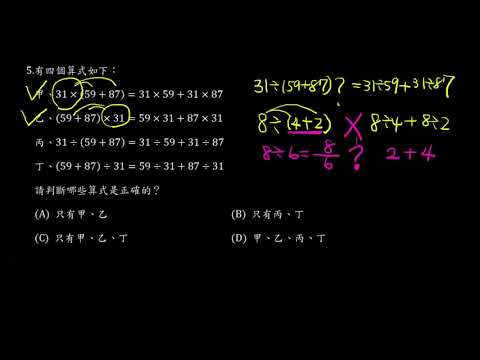 5.有四個算式如下：
甲、31×(59+87)=31×59+31×87
乙、(59+87)×31=59×31+87×31
丙、31÷(59+87)=31÷59+31÷87
丁、(59+87)÷31=59÷31+87÷31
請判斷哪些算式是正確的？
(A) 只有甲、乙
(B) 只有丙、丁
(C) 只有甲、乙、丁
(D) 甲、乙、丙、丁
31÷(59+87) ? =31÷59+31÷87
8÷(4+2) X 8÷4+8÷2
8÷6=8/6 ? 2+4